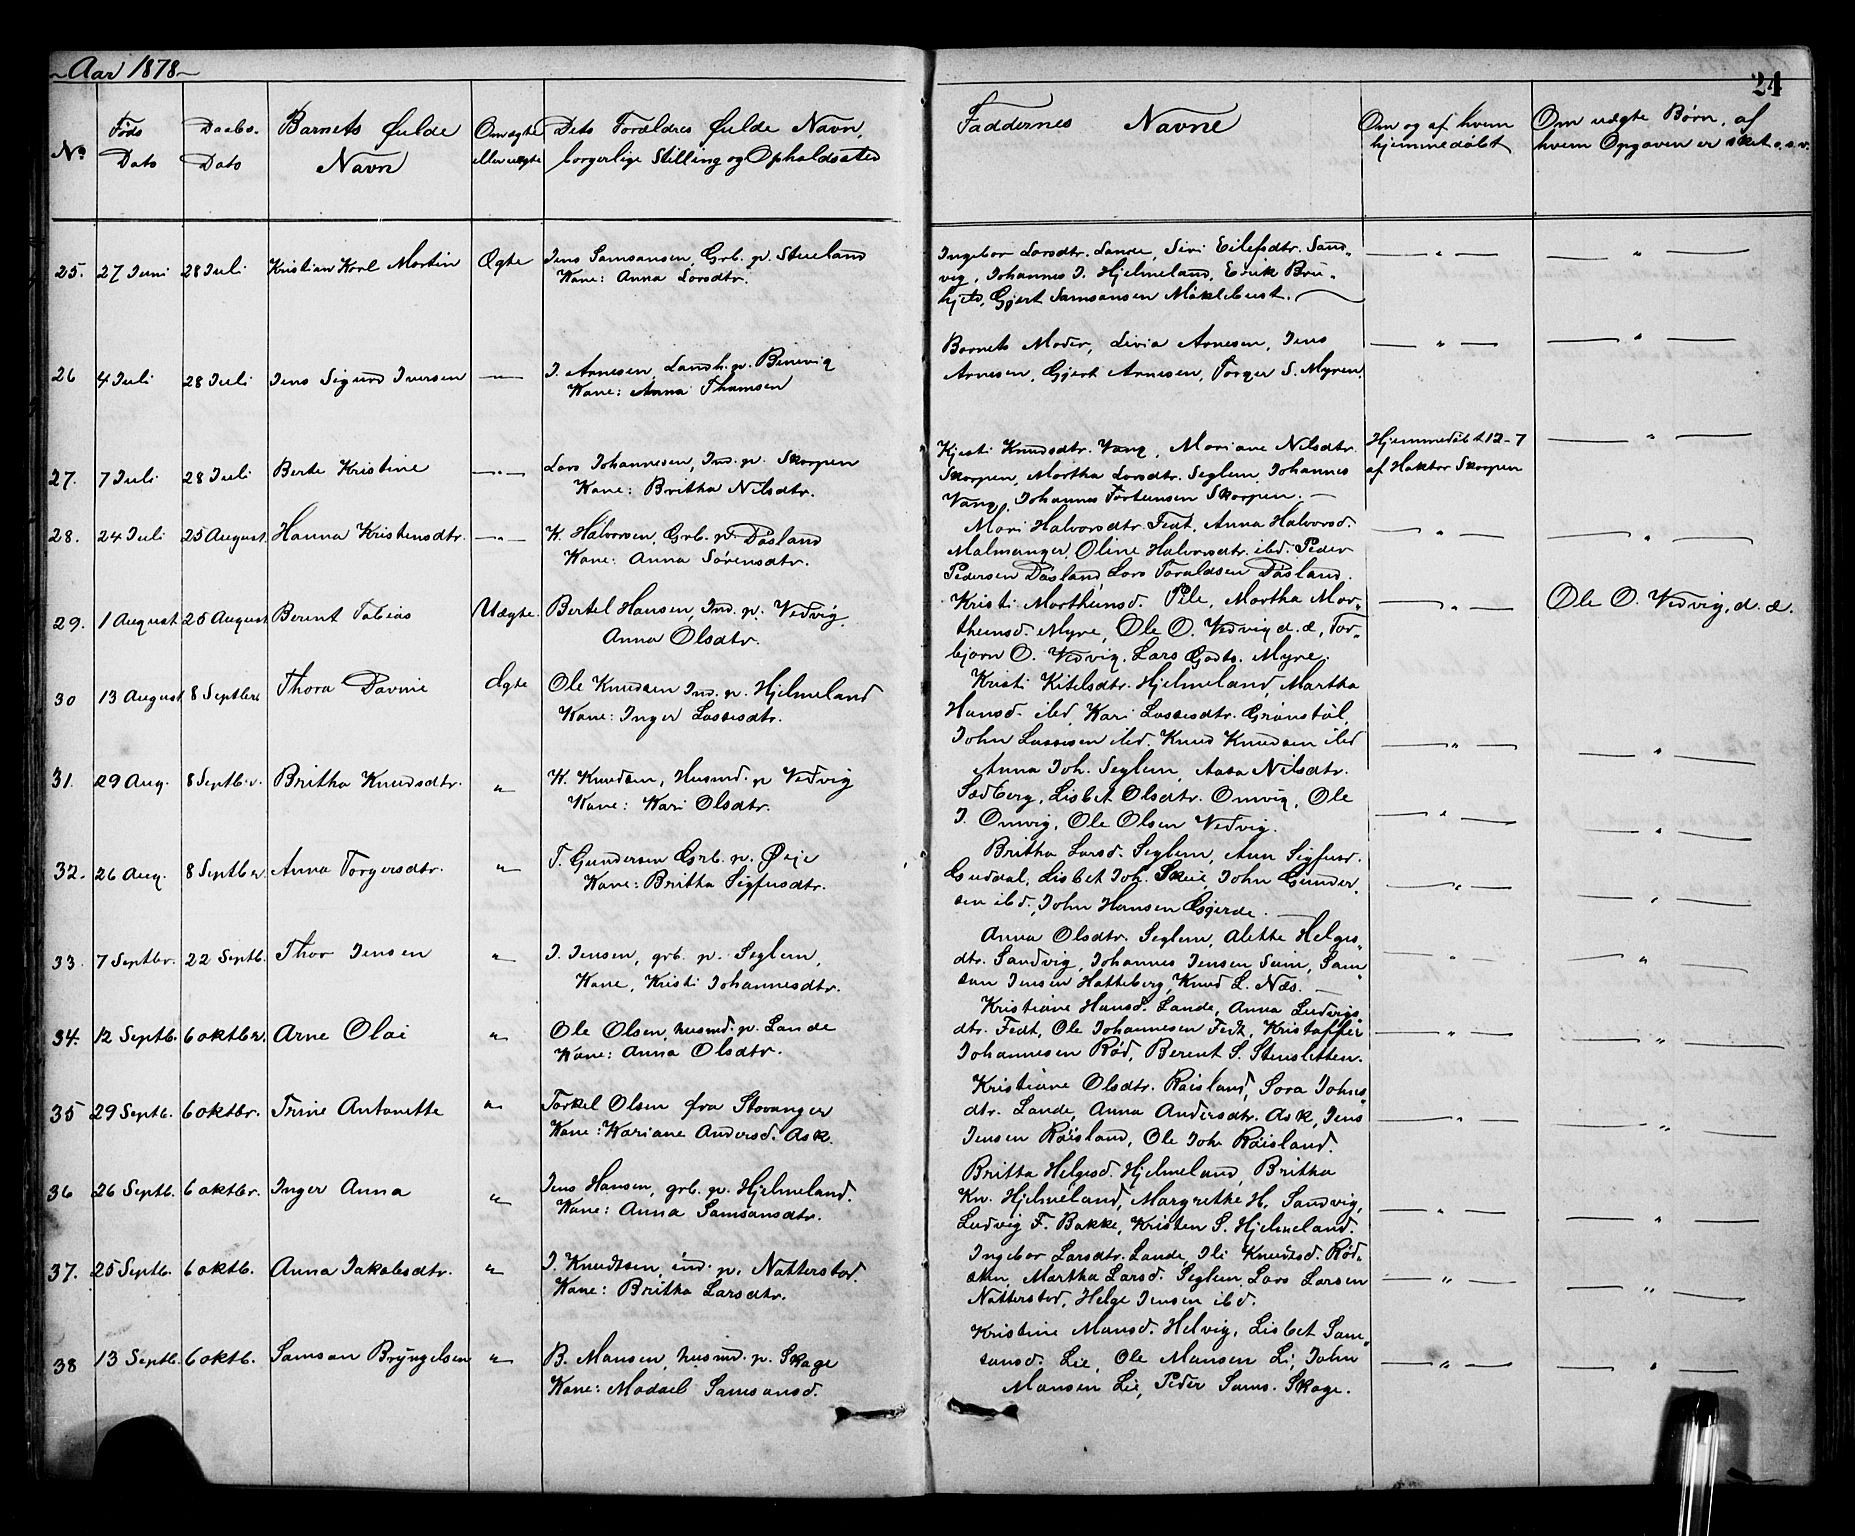 Aar 1878
24
No
Føds Dato
Daabs. Dato
Barnets Fulde Navn
Om ægte eller uægte
Dets Forældres Fulde Navn, borgerlige Stilling og Opholdssted
Faddernes Navne
Om og af hvem hjemmedøbt
Om uægte Børn, af hvem Opgaven er sket o.s.v.
25. 27 Juni 28 Juli Kristian Karl Martin Ægte Jens Samsansen, Grb. p.
Kone: Anna Larsdtr.
Ingebor Larsdtr. Lande, Siri Eilefsdtr. Sand-
vig, Johannes J. Hjelmeland, Erik
Gjert Samsansen Møklebust.
26 4 Juli 28 Juli Jens Sigurd Iversen — " — I. Arnesen, Landh. p. Benevig
Kone: Anna Thomsen
Barnets Moder, Livia Arnesen, Jens
Arnesen, Gjert Arnesen, Torger S. Myren.
27. 7 Juli 28 Juli Berte Kristine — " — Lars Johannesen, Ind. p. Skorpen
Kone: Britha Nilsdtr.
Kjesti Knudsdtr. Vang, Mariane Nilsdtr.
Skorpen, Martha Larsdtr. Seglem, Johannes
Vang, Johannes Tortensen Skorpen. —
Hjemmedøbt 12-7
af Haktor Skorpen
28. 24 Juli 25 August Hanna Kristensdtr. — " — K. Halvorsen, Grb. p. Døsland
Kone: Anna Sørensdtr.
Mari Halvorsdtr. Fedt, Anna Halvorsd.
Malmanger, Oline Halvorsdtr. ibd. Peder
Pedersen Døsland, Lars Taraldsen Døsland.
29. 1 August 25 August Berent Tobias Uægte. Bertel Hansen, Ind. p. Vedvig.
Anna Olsdtr.
Kristi Morthensd. Pile, Martha Mor-
thensd. Myre, Ole O. Vedvig d. æ, Tor-
bjørn O. Vedvig. Lars Godts. Myre.
Ole O. Vedvig, d. æ.
30 13 August 8 Septbr Thora Davine Ægte Ole Knudsen Ind. p. Hjelmeland
Kone: Inger Lassesdtr.
Kristi Kitelsdtr. Hjelmeland, Martha
Hansd. ibd, Kari Lassesdtr. Grønstøl,
John Lassesen ibd. Knud Knudsen ibd
31. 29 Aug. 8 Septb.r. Britha Knudsdtr. " K. Knudsen, Husmd. p Vedvig
Kone: Kari Olsdtr.
Anna Joh. Seglem, Aasa Nilsdtr.
Sædberg, Lisbet Olsdtr. Omvig, Ole
J. Omvig, Ole Olsen Vedvig.
32. 26 Aug. 8 Septber. Anna Torgersdtr. " T. Gundersen Grb. p. Øije
Kone: Britha Sigfusdtr.
Britha Larsd. Seglem, Ann Sigfusd.
Guddal, Lisbet Joh. Skeie, John Gunder-
sen ibd., John Hansen Gjerde. —
33. 7 Septbr. 22 Septb. Thor Jensen " J. Jensen, grb. p. Seglem,
Kone, Kristi Johannesdtr.
Anna Olsdtr. Seglem, Alette Helges-
dtr. Sandvig, Johannes Jensen Seim, Sam-
san Jensen Hatteberg, Knud L. Næs. —
34. 12 Septb. 6 oktber. Arne Olai " Ole Olsen, husmd. p. Lande
Kone: Anna Olsdtr.
Kristiane Hansd. Lande, Anna Ludvigs-
dtr. Fedt, Ole Johannesen Fedt, Kristoffer
Johannesen Rød, Berent S. Stensletten.
35 29 Septb. 6 oktbr. Trine Antonette " Torkel Olsen fra Stavanger
Kone: Kariane Andersd. Ask.
Kristiane Olsdtr. Røisland, Sara Johns-
dtr. Lande, Anna Andersdtr. Ask, Jens
Jensen Røisland, Ole Joh. Røisland.
36 26 Septb. 6 oktbr. Inger Anna " Jens Hansen, grb. p. Hjelmeland.
Kone: Anna Samsansdtr.
Britta Helgesd. Hjelmeland, Britha
Kn. Hjelmeland, Margrethe H. Sandvig,
Ludvig F. Bakke, Kristen S. Hjelmeland.
37. 25 Septb. 6 oktb. Anna Jakobsdtr. " J. Knudtsen, ind. p. Natterstad.
Kone: Britha Larsdtr.
Ingebor Larsdtr. Lande, Ili Knudtsd. Rød-
sten, Martha Larsd. Seglem, Lars Larsen
Natterstad, Helge Jensen ibd.
38 13 Septb. 6 oktb. Samsan Bryngelsen " B. Mansen, husmd. p. Skage
Kone: Madaeb Samsansd.
Kristine Mansd. Helvig, Lisbet Sam-
sansd. Lie, Ole Mansen Li, John
Mansen Lie, Peder Sams. Skage.